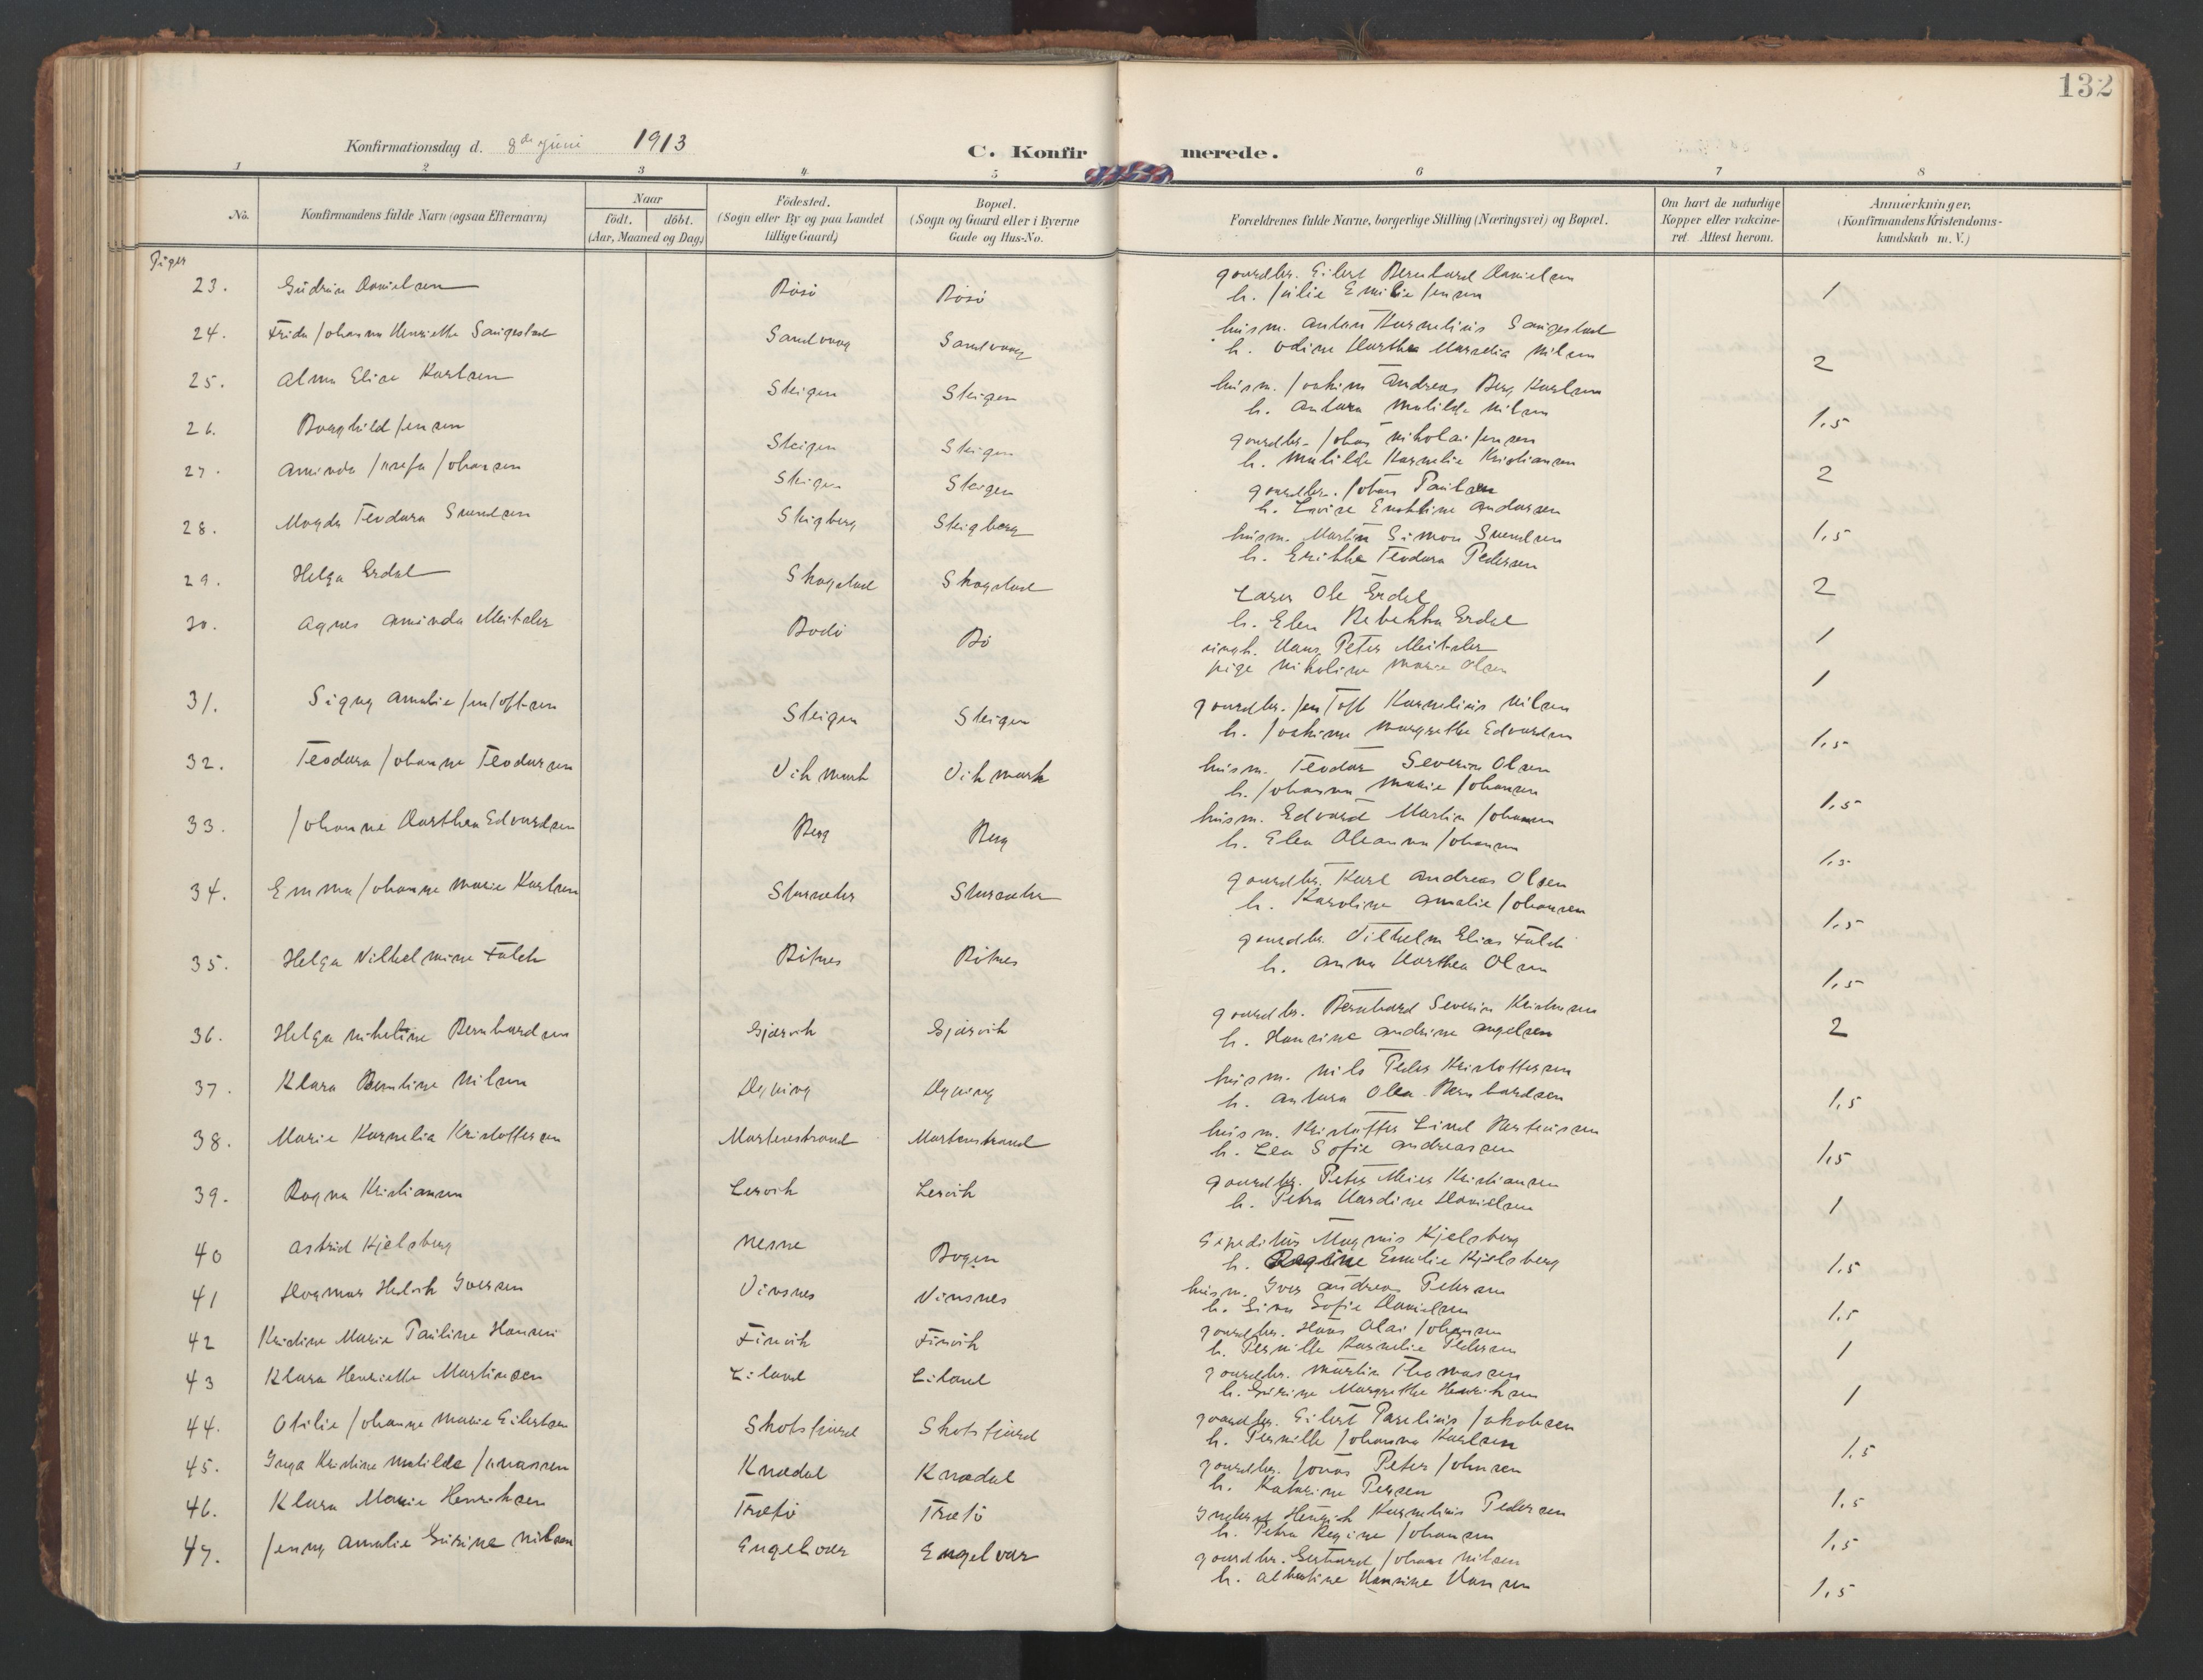 132
Konfirmationsdag d. 8de juni 1913
C. Konfirmerede.
1 2 3 4 5 6 7 8
No.
Konfirmandens fulde Navn (ogsaa Efternavn)
Naar
født. døbt.
(Aar, Maaned og Dag)
Fødested.
(Sogn eller By og paa Landet
tillige Gaard)
Bopæl.
(Sogn og Gaard eller i Byerne
Gade og Hus-No.
Forældrenes fulde Navne, borgerlige Stilling (Næringsvei) og Bopæl.
Om havt de naturlige
Kopper eller vakcine-
ret. Attest herom.
Anmærkninger,
(Konfirmandens Kristendoms-
kundskab m. V.)
Piger
23. Gudrun Danielsen Bøsø Bøsø gaardbr. Eilert Bernhard Danielsen 1
h. Julie Emilie Jensen
24. Frida Johanna Henriette Saugestad Sandvaag Sandvaag husm. Anton Kornelius Saugestad 2
h. Odine Marselia Nilsen
25. Alma Elise Karlsen Steigen Steigen husm. Joakim Andreas Berg Karlsen 1,5
h. Antora Matilde Nilsen
26. Borghild Jensen Steigen Steigen gaardbr. Johan Nikolai Jensen 2
h. Matilde Kornelie Kristiansen
27. Aminda Josefa Johansen Steigen Steigen gaardbr. Johan Paulsen 1,5
h. Lovise Andersen
28. Magda Teodora Svendsen Steigberg Steigberg husm. Martin Simon Svendsen 2
h. Erikka Teodora Pedersen
29. Helga Erdal Skagstad Skagstad Lærer Ole Erdal 1
h. Elen Rebekka Erdal
30. Agnes Aminda Meitaler Bodø Bø ungk. Hans Peter Meitaler 1
pige Nikoline Marie Olsen
31. Signy Amalie Jentoftsen Steigen Steigen gaardbr. Jentoft Kornelius Nilsen 1,5
h. Joakime Margrethe Edvardsen
32. Teodora Johanne Teodorsen Vikmark Vikmark husm. Teodor Severin Olsen 1,5
h. Johanna Marie Johansen
33. Johanne Dorthea Edvardsen Berg Berg husm. Edvard Martin Johansen 1,5
h. Elen Oleanna Johansen
34. Emma Johanne Marie Karlsen gaardbr. Karl Andreas Olsen 1,5
h. Karoline Amalie Johansen
35. Helga Vilhelmine Falch Bøtnes Bøtnes gaardbr. Vilhelm Elias Falch 1,5
h. Anna Olsen
36. Helga Nikoline Bernhardsen Gjærvik Gjærvik gaardbr. Bernhard Severin Kristensen 2
h. Hansine Andrine Angelsen
37. Klara Bentine Nilsen Dyping Dyping husm. Nils Peder Kristoffersen 1,5
h. Antora Olea Bernhardsen
38. Marie Kornelia Kristoffersen Mortenstrand Mortenstrand husm. Kristoffer Lind Berteussen 1,5
h. Lea Sofie Andreassen
39. Ragna Kristiansen Lervik Lervik gaardbr. Peter Meier Kristiansen 1
h. Petra Danielsen
40 Astrid Kjelsberg Nesne Bogen Expeditør Magnus Kjelsberg 1,5
h. Regine Emilie Kjelsberg
41 Dagmar Iversen Vinsnes Vinsnes husm. Iver Andreas Petersen 1,5
h. Gina Sofie Danielsen
42 Kristine Marie Pauline Hansen Finvik Finvik gaardbr. Hans Olai Johansen 1
h. Pernille Kornelie Pedersen
43 Klara Henriette Martinsen Liland Liland gaardbr. Martin Thomassen 1
h. Gurine Margrethe Henriksen
44. Otilie Johanne Marie Eilertsen Skotsfjord Skotsfjord gaardbr. Eilert Parelius Jakobsen 1,5
h. Pernille Johanna Karlsen
45. Inga Kristine Matilde Jonassen Knædal Knædal gaardbr. Jonas Peter Johnsen 1,5
h. Katarine Persen
46. Klara Marie Henriksen Trætø Trætø Inderst Henrik Kornelius Pedersen 1,5
h. Petra Regine Johansen
47. Jenny Amalie Gurine Nilsen Engelvær Engelvær gaardbr. Gerhard Johan Nilsen 1,5
h. Albertine Hansine Hansen